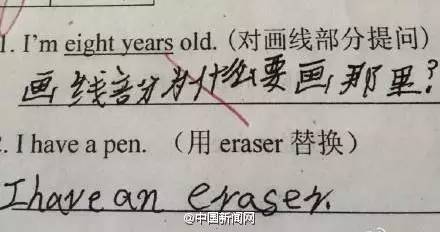 1. I'm eight years old. (对画线部分提问)
画线部分为什么要画那里?
2. I have a pen. (用 eraser 替换)
I have an eraser.
@中国新闻网